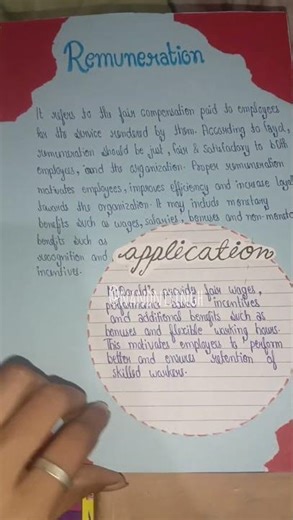 Remuneration
It refers to the fair compensation paid to employees
for the service rendered by them. According to Fayol,
remuneration should be just, fair & satisfactory to both
employees, and the organization. Proper remuneration
motivates employees, improves efficiency and increase loyal
towards the organization. It may include monetary
benefits such as wages, salaries, bonuses and non-moneta
benefits such as
recognition and
incentives.
application
McDonald's provide fair wages,
performance based incentives
and additional benefits such as
bonuses and flexible working hours.
This motivates employees to perform
better and ensures retention of
skilled workers.